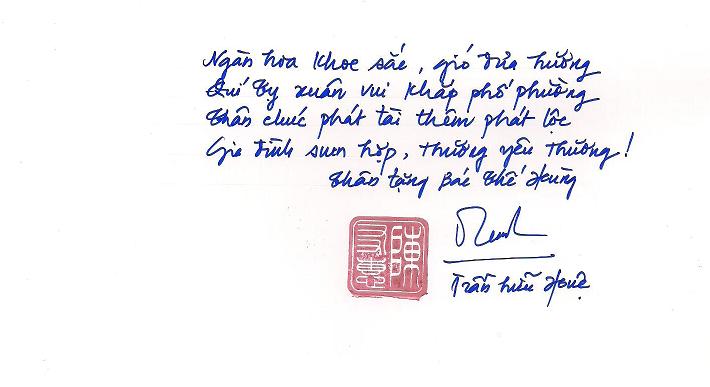 Ngàn hoa khoe sắc, gió đưa hương
Quí Tỵ xuân vui khắp phố phường
Thân chúc phát tài thêm phát lộc
Gia đình sum họp, thương yêu thương!
Thân tặng Bác Thế Hùng
Trần Hữu Huệ